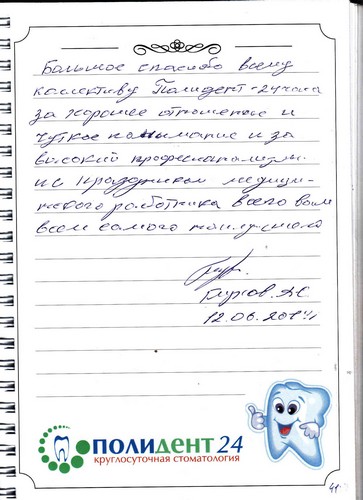 Большое спасибо всему
коллективу Полидент-24 часа
за хорошее отношение и
чуткое понимание и за
высокий профессионализм.
праздником медици-
нского работника всего вам
всем самого наилучшего
12.06.2014
ПОЛИДЕНТ 24
круглосуточная стоматология
41